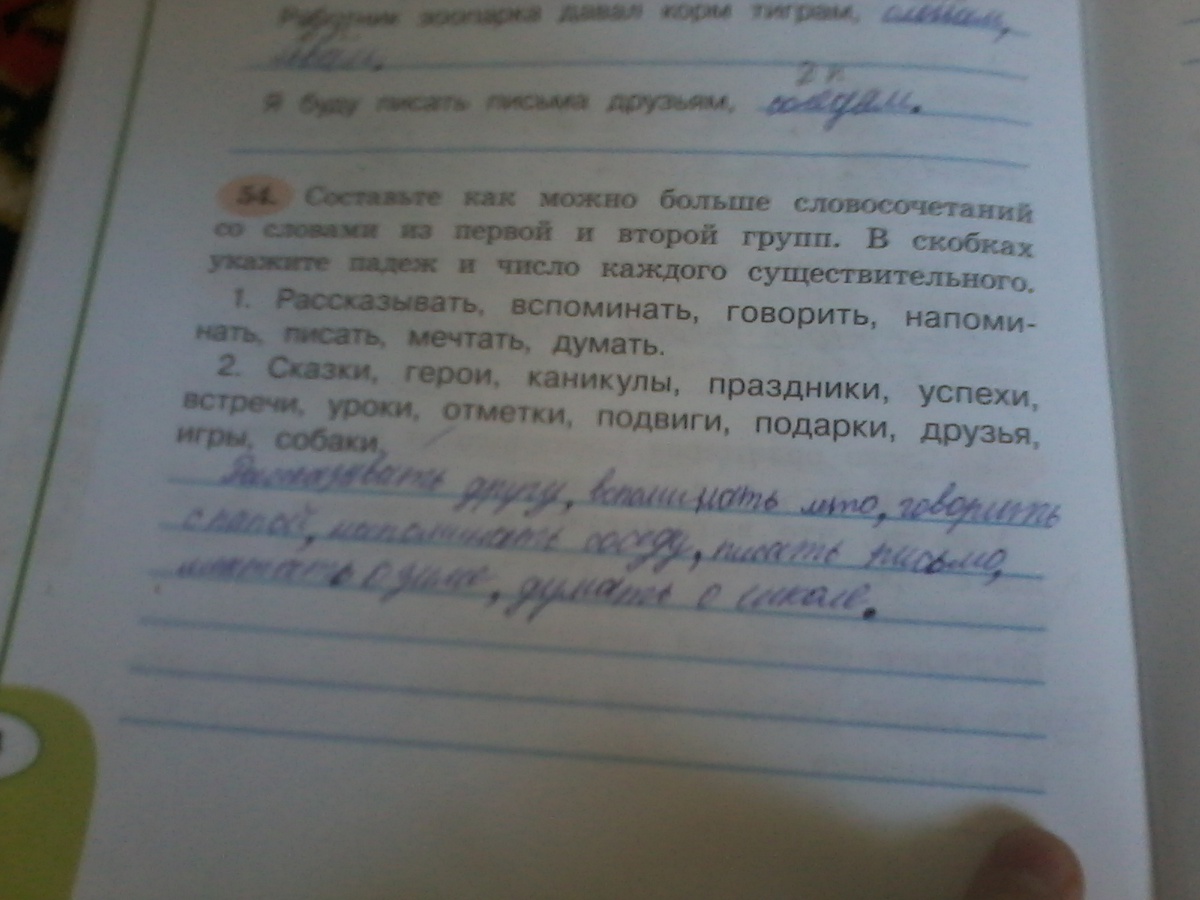 Работник зоопарка давал корм тиграм, слонам,
львам.
2 п.
Я буду писать письма друзьям, соседям.
54. Составьте как можно больше словосочетаний
со словами из первой и второй групп. В скобках
укажите падеж и число каждого существительного.
1. Рассказывать, вспоминать, говорить, напоми-
нать, писать, мечтать, думать.
2. Сказки, герои, каникулы, праздники, успехи,
встречи, уроки, отметки, подвиги, подарки, друзья,
игры, собаки,
Рассказывать другу, вспоминать лето, говорить
с папой, напоминать соседу, писать письмо,
мечтать о зиме, думать о школе.